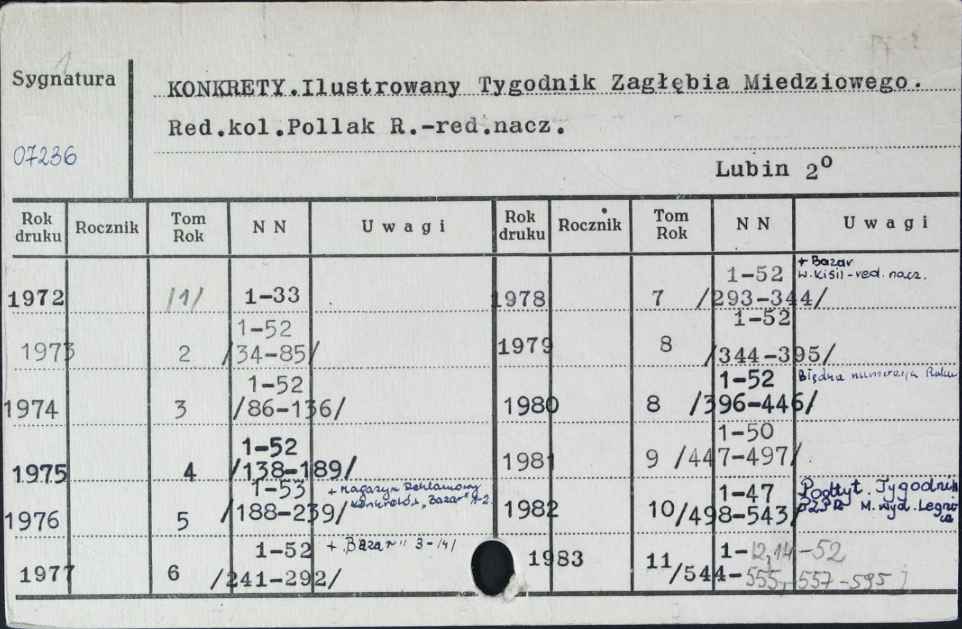 Sygnatura
07236
KONKRETY.Ilustrowany Tygodnik Zagłębia Miedziowego.
Red.kol.Pollak R.-red.nacz.
Lubin 2º
Rok druku Rocznik Tom Rok N N Uwagi Rok druku Rocznik Tom Rok N N Uwagi
1972 /1/ 1-33
1973 2 1-52 /34-85/
1974 3 1-52 /86-136/
1975 4 1-52 /138-189/
1976 5 1-53 /188-239/ + Magazyn Reklamowy Konkretów "Bazar"
1977 6 1-52 /241-292/ + "Bazar" 3-/4/
1978 7 1-52 /293-344/ + Bazar W. Kisil-red. nacz.
1979 8 1-52 /344-395/
1980 8 1-52 /396-446/ Błędna numeracja Roku
1981 9 1-50 /447-497/
1982 10 1-47 /498-543/ Podtyt. Tygodnik PZPR M. wyd. Legnica
1983 11 1-12,14-52 /544-555,557-595/